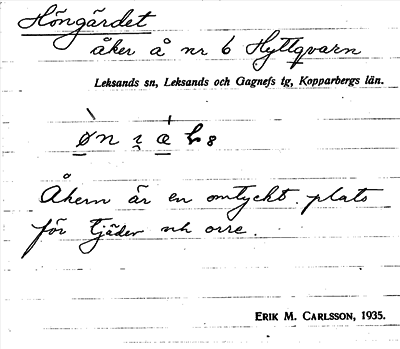 Höngärdet
åker å nr 6 Hyttqvarn
Leksands sn, Leksands och Gagnefs tg, Kopparbergs län.
Åkern är en omtyckt plats
för tjäder och orre.
ERIK M. CARLSSON, 1935.